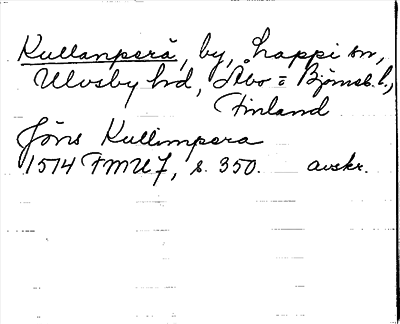 Kullanperä, by, Lappi sn,
Ulvsby hd, Åbo = Björneb. l.,
Finland
Jöns Kullimpera
1514 FMU 7, s. 350. avskr.